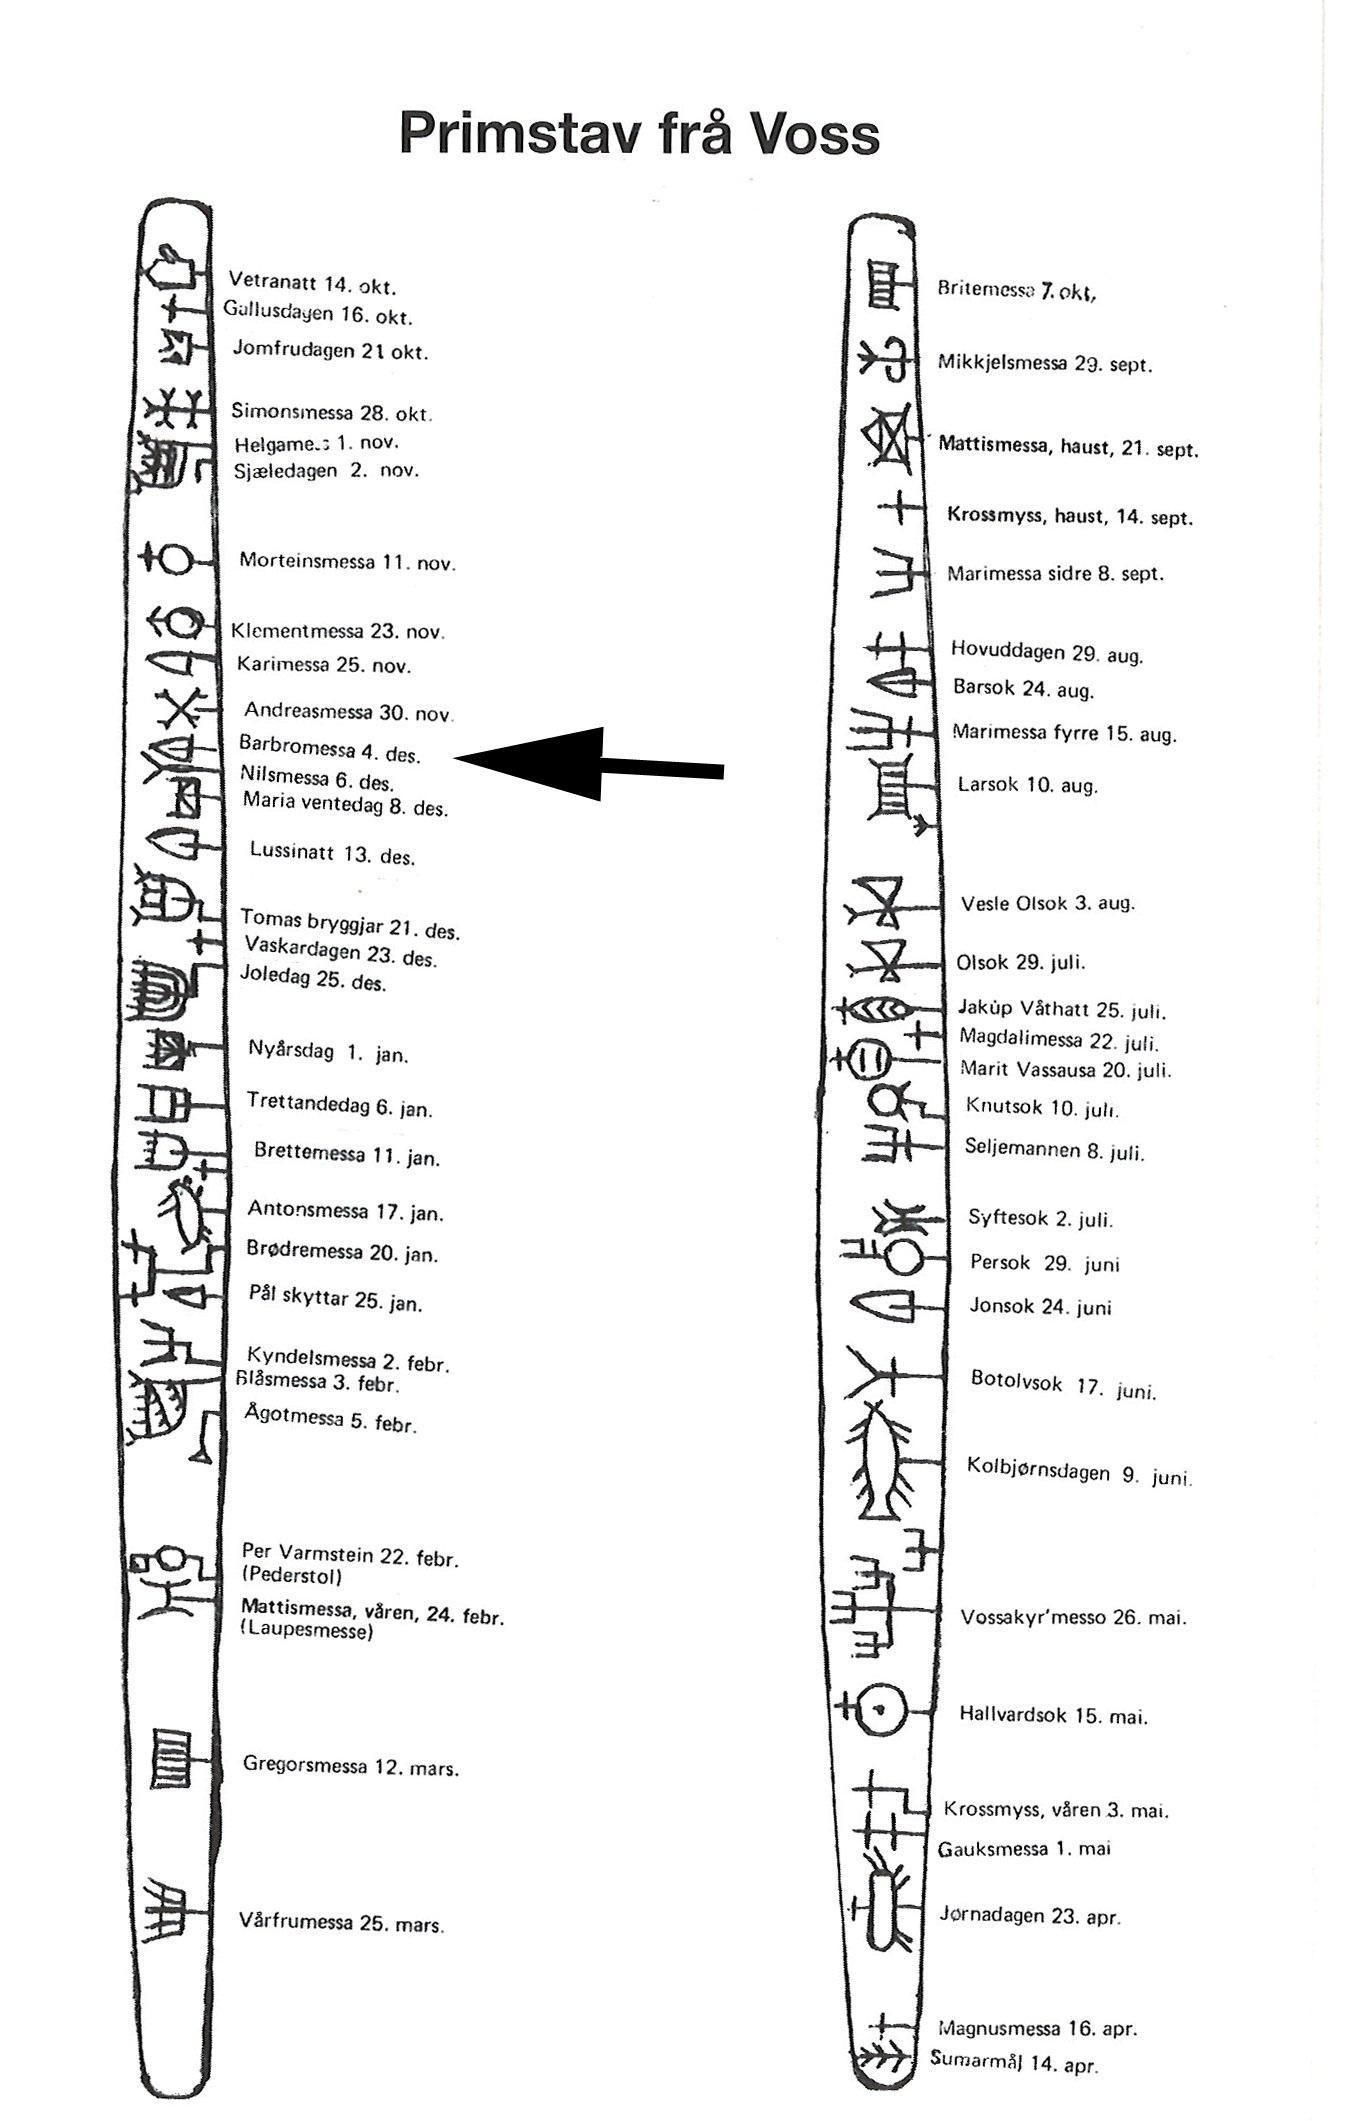 Primstav frå Voss
Vetranatt 14. okt.
Gallusdagen 16. okt.
Jomfrudagen 21 okt.
Simonsmessa 28. okt.
1. nov.
Sjæledagen 2. nov.
Morteinsmessa 11. nov.
Klementmessa 23. nov.
Karimessa 25. nov.
Andreasmessa 30. nov.
Barbromessa 4. des.
Nilsmessa 6. des.
Maria ventedag 8. des.
Lussinatt 13. des.
Tomas bryggjar 21. des.
Vaskardagen 23. des.
Joledag 25. des.
Nyårsdag 1. jan.
Trettandedag 6. jan.
Brettemessa 11. jan.
Antonsmessa 17. jan.
Brødremessa 20. jan.
Pål skyttar 25. jan.
Kyndelsmessa 2. febr.
Blåsmessa 3. febr.
Ågotmessa 5. febr.
Per Varmstein 22. febr.
(Pederstol)
Mattismessa, våren, 24. febr.
(Laupesmesse)
Gregorsmessa 12. mars.
Vårfrumessa 25. mars.
Britemessa 7. okt.
Mikkjelsmessa 29. sept.
Mattismessa, haust, 21. sept.
Krossmyss, haust, 14. sept.
Marimessa sidre 8. sept.
Hovuddagen 29. aug.
Barsok 24. aug.
Marimessa fyrre 15. aug.
Larsok 10. aug.
Vesle Olsok 3. aug.
Olsok 29. juli.
Jakúp Våthatt 25. juli.
Magdalimessa 22. juli.
Marit Vassausa 20. juli.
Knutsok 10. juli.
Seljemannen 8. juli.
Syftesok 2. juli.
Persok 29. juni
Jonsok 24. juni
Botolvsok 17. juni.
Kolbjørnsdagen 9. juni.
Vossakyr'messo 26. mai.
Hallvardsok 15. mai.
Krossmyss, våren 3. mai.
Gauksmessa 1. mai
Jørnadagen 23. apr.
Magnusmessa 16. apr.
Sumarmål 14. apr.